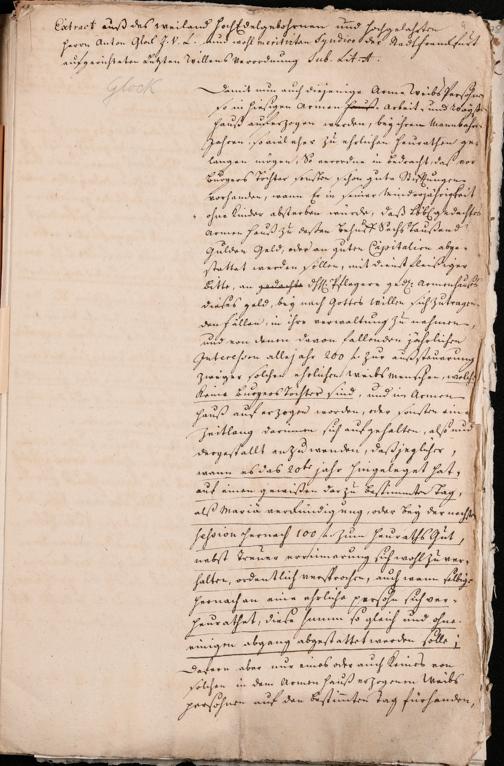 Extract auß des weiland HochEdelgebohrnen und Hochgelahrten
Herrn Anton Glock J. V. L. und wohl meritirten Syndici der Stadt Franckfurt
aufgerichteten Letzten Willens Verordnung Sub. Lit. A.
Glock
Damit nun auch diejenige Arme Weibs Persohnen
so in hiesigen Armen Arbeit- und Waysen
hauß auferzogen werden, bey ihrem Mannbahren
Jahren, so viel eher zu ehrlichen heurathen ge-
langen mögen, So verordne in bedracht, das vor
burgers Töchter sonsten schon gute Stifftungen
vorhanden, wann Er in seiner Minderjährigkeit
ohne Kinder absterben würde, daß obbesagtem
Armen Hauß zu desten behuff Sechs Taußend
Gulden Geld, oder an guten Capitalien abge-
stattet werden sollen, mit dienstfleisiger
bitte, an Pflegere gedn. Armenhauß
dieses geld, bey nach Gottes Willen sich zutragen-
den fällen, in ihre verwaltung zu nehmen,
und von denen davon fallenden jährlichen
Interessen alle jahr 200 f. zur außsteurung
zweyer solchen ehrlichen Weibs Menschen, welche
keine burgers Töchter sind, und in Armen
hauß auferzogen worden, oder sonsten eine
zeitlang darinnen sich aufgehalten, also und
dergestallt anzuwenden, daß jeglicher,
wann es das 20te jahr hingeleget hat,
auf einen gewißen darzu bestimmten Tag,
als Mariä verkündigung, oder bey der nächsten
session hernach 100 f. zum heuraths Gut,
nebst Treuer erinnerung sich wohl zu ver-
halten, ordentlich versprochen, auch wann selbige
hernach an eine ehrliche persohn sich ver-
heurathet, diese Summ so gleich und ohne
einigen abgang abgestattet werden solle;
Dafern aber nur eines oder auch keines von
solchen in dem Armen Hauß erzogenen Weibs
persohnen auf den bestimten Tag fürhanden,